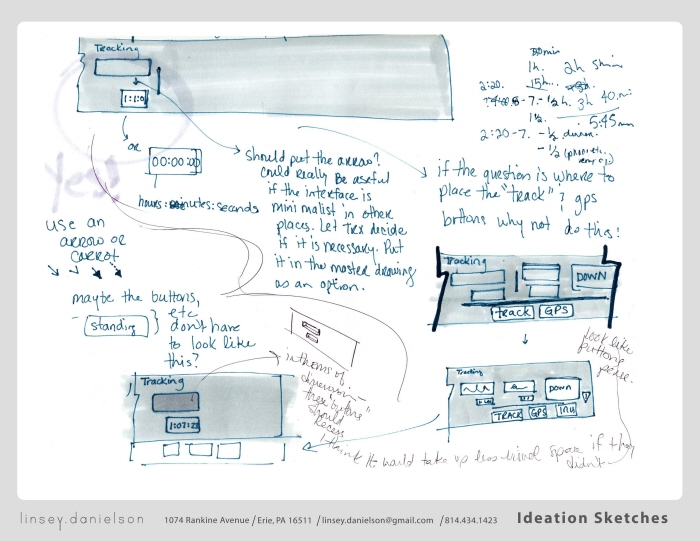 Tracking
1:1:0
OR
00:00:00
hours: minutes: seconds
Yes!
use an
arrow or
carrot
maybe the buttons,
etc
standing
don't have
to look like
this?
should put the arrow?
could really be useful
if the interface is
minimalist in other
places. Let Trx decide
if it is necessary. Put
it in the master drawing
as an option.
30 min
1h. 2h 5min
2:20. 15h..
7. - 1/2 h. 3h 40 mi
1 1/2. 5:45 min
2:20-7. - 1/2 dinner.
- 1/2
if the question is where to
place the "track" & gps
buttons why not do this!
Tracking
DOWN
track GPS
look like
buttons
please.
in terms of
dimension -
these "buttons"
should
recess
Tracking
1:07:23
Tracking
DOWN
TRACK GPS INU
I think it would take up less visual space if they
didn't
linsey.danielson
1074 Rankine Avenue / Erie, PA 16511 / linsey.danielson@gmail.com / 814.434.1423
Ideation Sketches